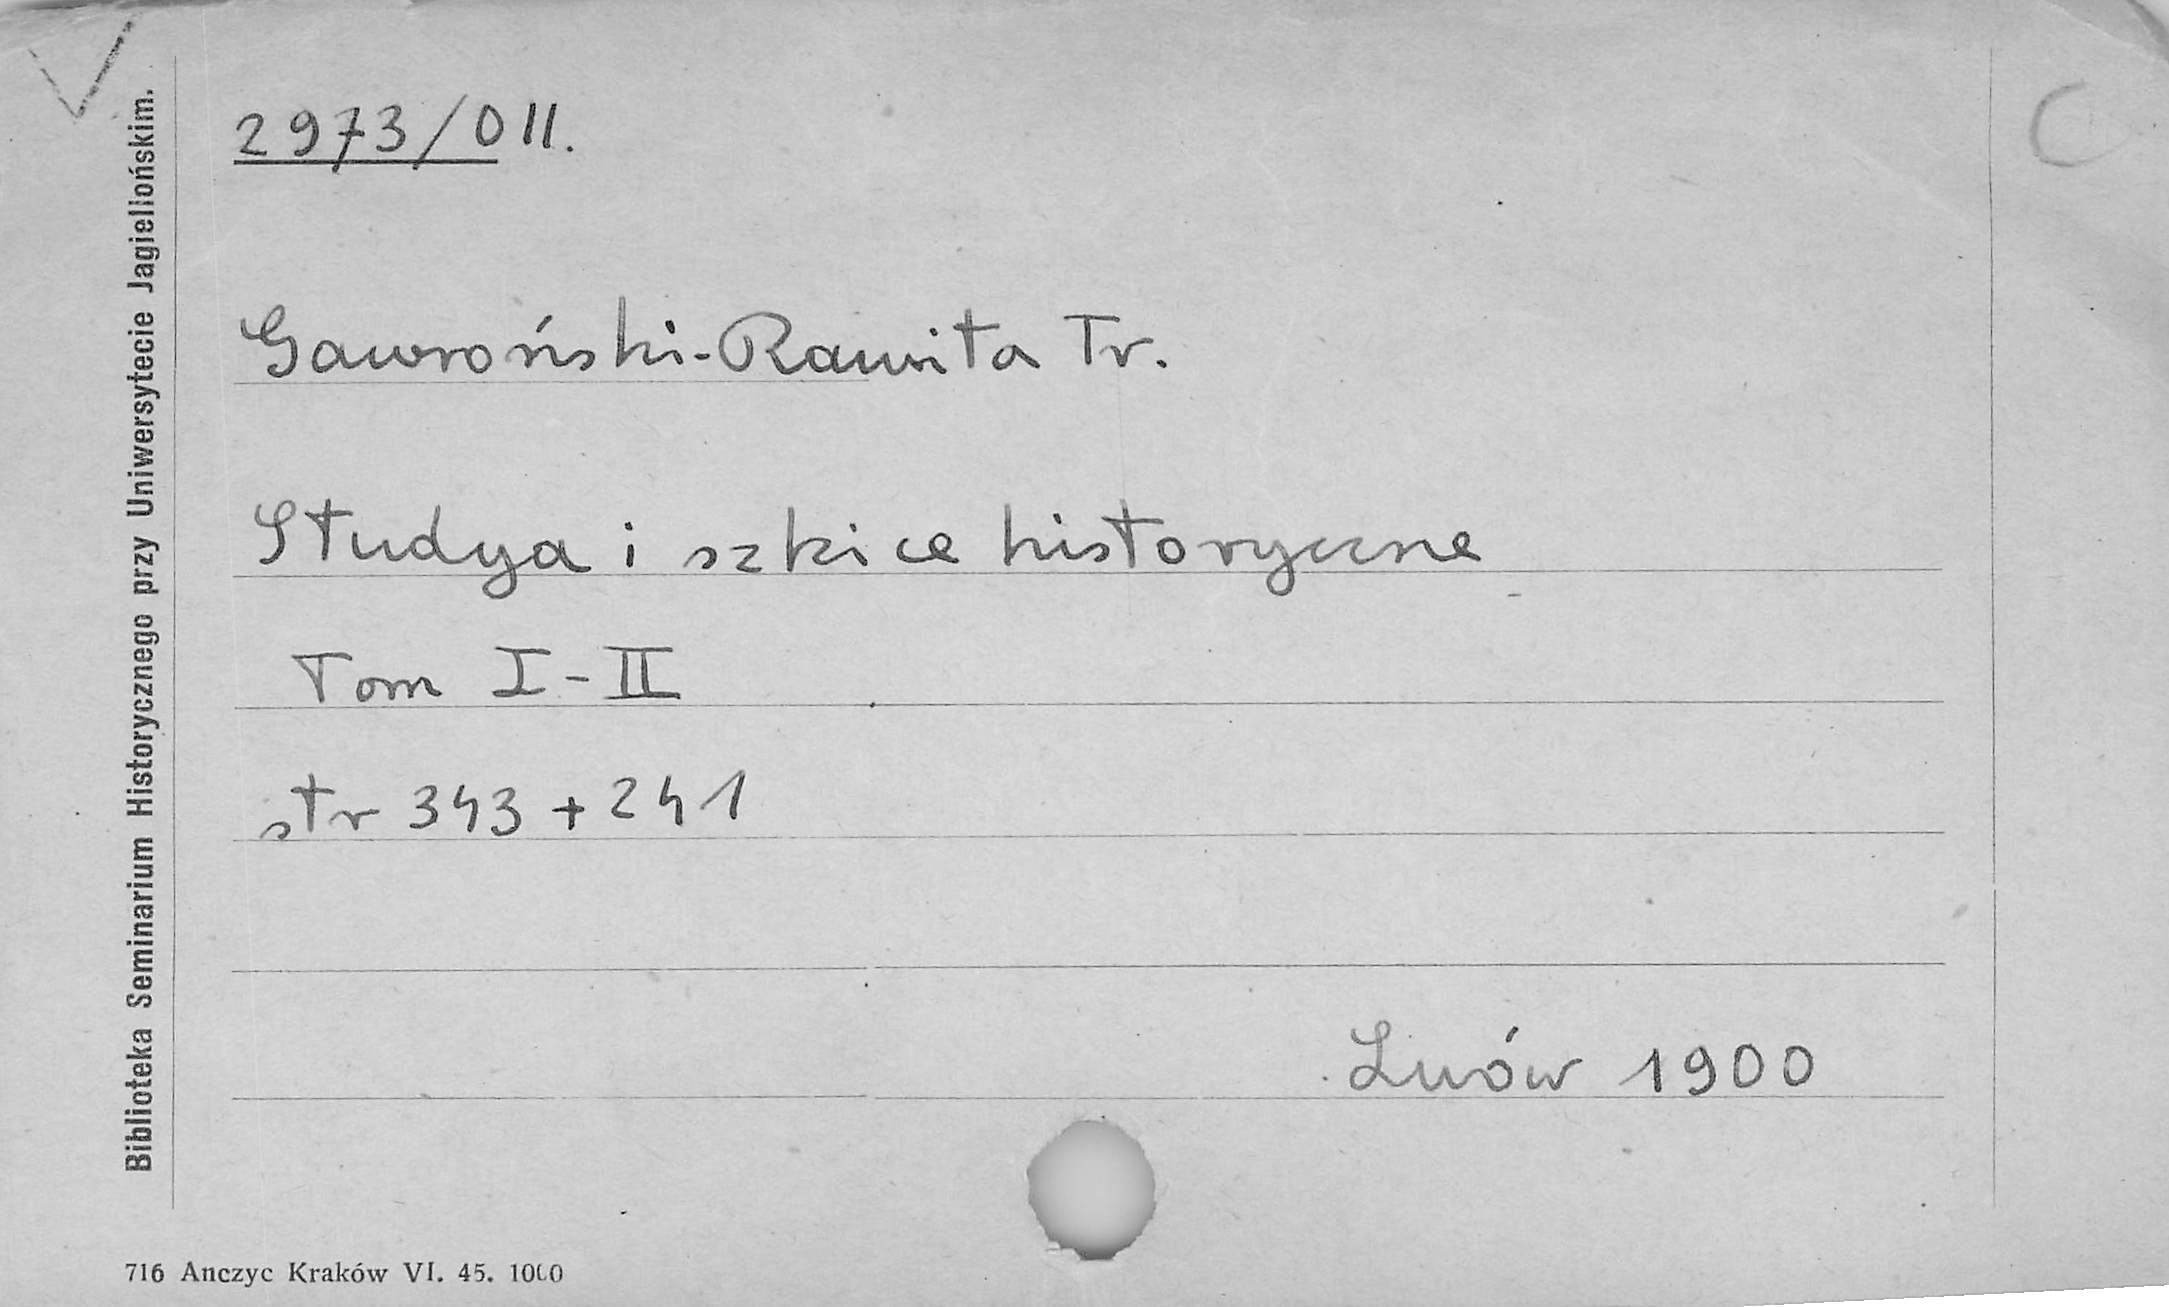 2973/0 II.
Gawroński-Rawita Tr.
Studya i szkice historyczne
Tom I-II
str 343 + 241
Lwów 1900
Biblioteka Seminarium Historycznego przy Uniwersytecie Jagiellońskim.
716 Anczyc Kraków VI. 45. 1000
C